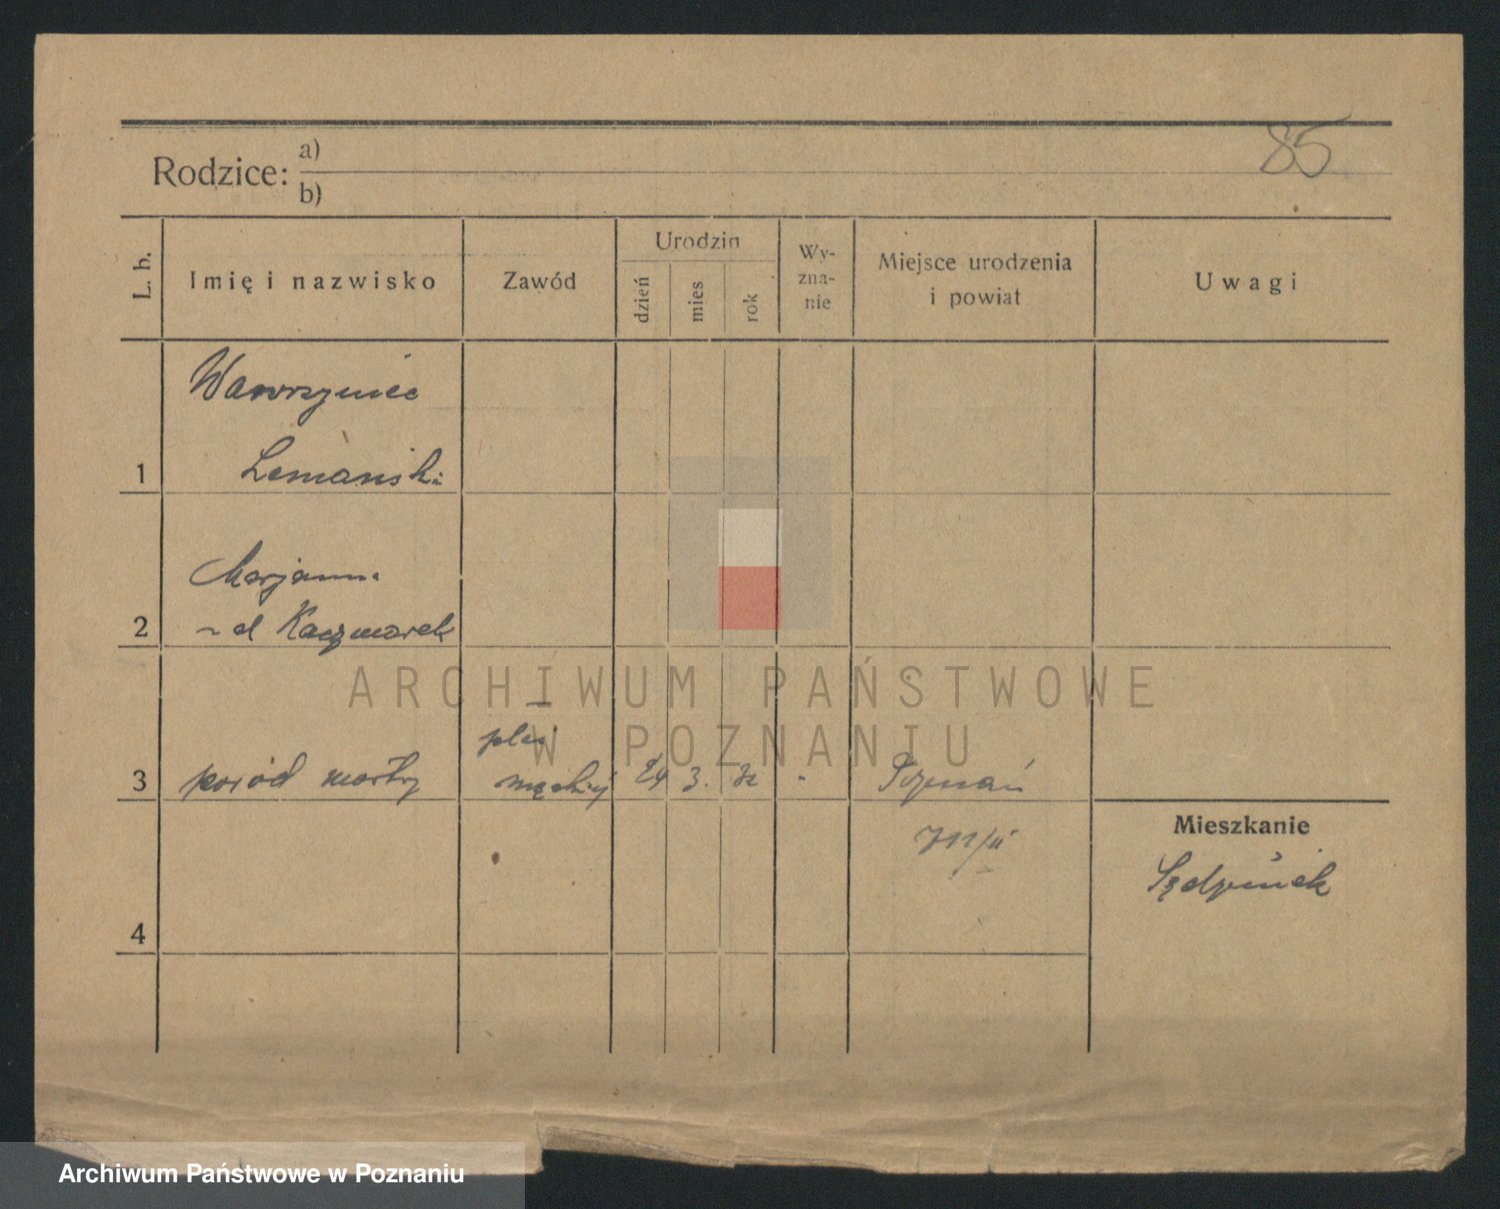 85
Rodzice: a)
b)
L. b.
Imię i nazwisko
Zawód
Urodzin
dzień
mies
rok
Wy-
zna-
nie
Miejsce urodzenia
i powiat
Uwagi
Wawrzyniec
1 Lemański
Marjanna
2 Kaczmarek
płci
3 poród martwy męskiej 24 3. 32 - Poznań
Mieszkanie
4
ARCHIWUM PAŃSTWOWE
W POZNANIU
Archiwum Państwowe w Poznaniu